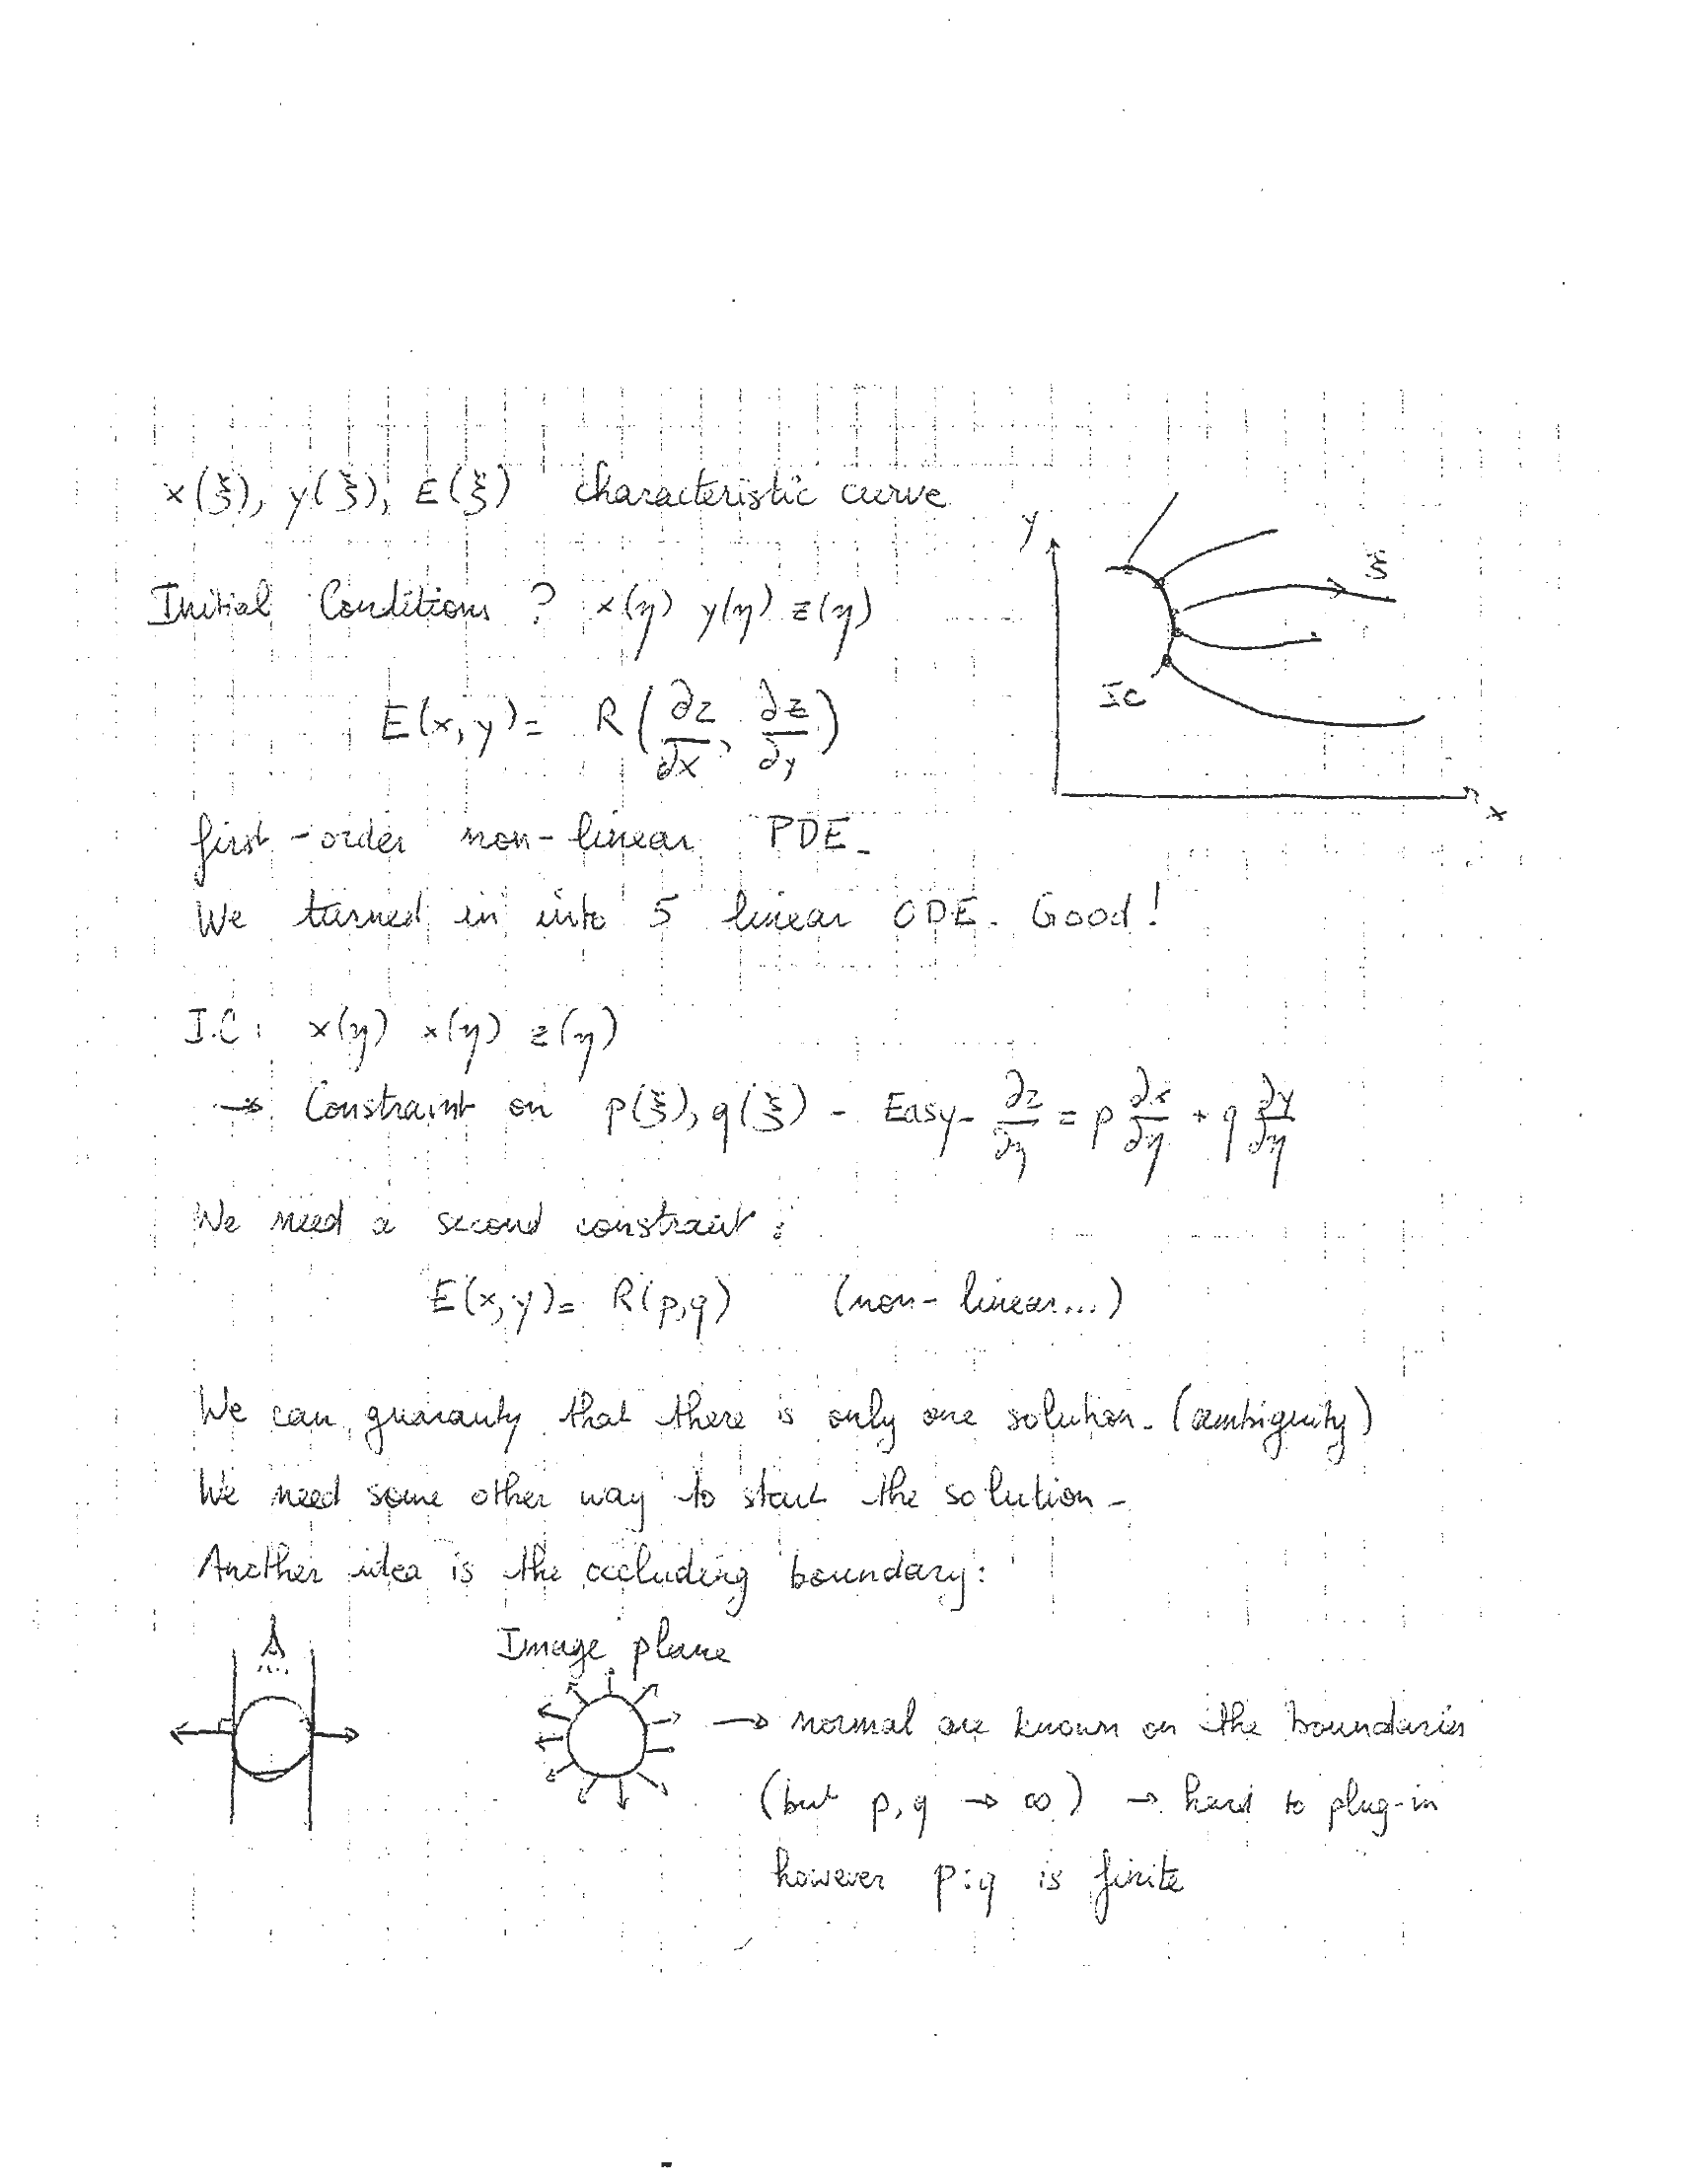 x(ξ), y(ξ), E(ξ) characteristic curve
y
ξ
IC
x
Initial Conditions ? x(η) y(η) z(η)
E(x, y) = R(∂z/∂x, ∂z/∂y)
first-order non-linear PDE.
We turned in into 5 linear ODE. Good!
I.C: x(η) x(η) z(η)
→ Constraint on p(ξ), q(ξ) - Easy - ∂z/∂η = p ∂x/∂η + q ∂y/∂η
We need a second constraint:
E(x, y) = R(p,q) (non-linear...)
We can guaranty that there is only one solution. (ambiguity)
We need some other way to start the solution -
Another idea is the occluding boundary:
Image plane
→ normal are known on the boundaries
(but p, q → ∞) → hard to plug-in
however p:q is finite